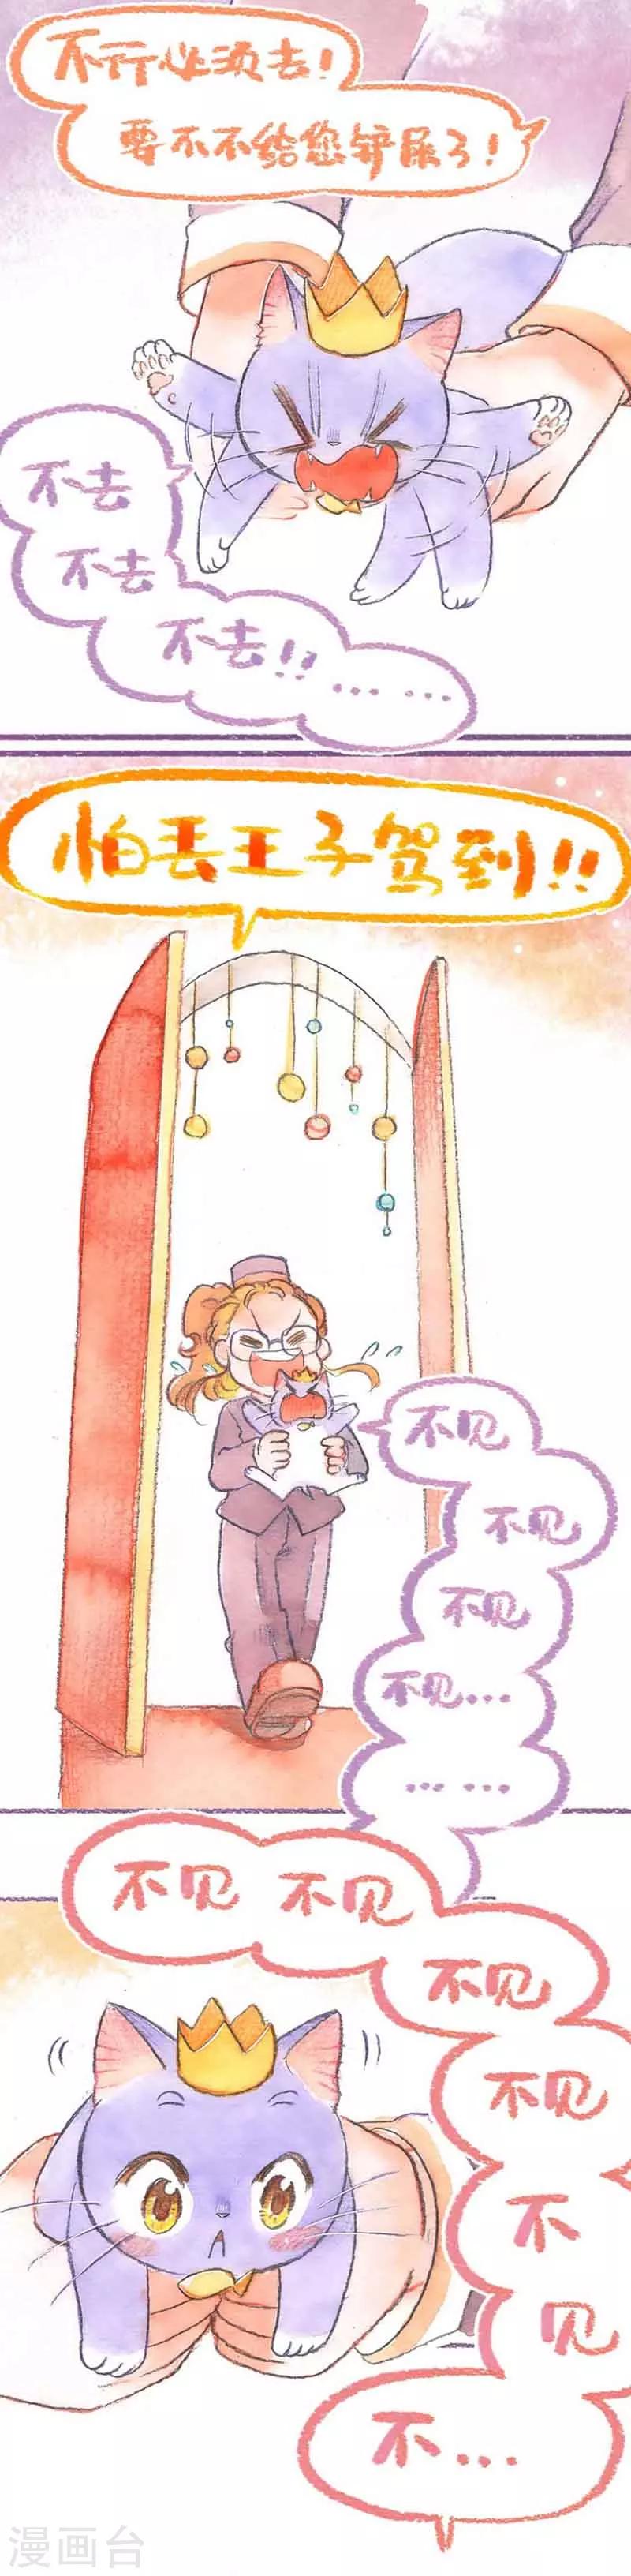 不行必须去！
要不不给您铲屎了！
不去
不去
不去!!……
怕丢王子驾到!!
不见
不见
不见
不见…
……
不见 不见
不见
不见
不
见
不…
漫画台